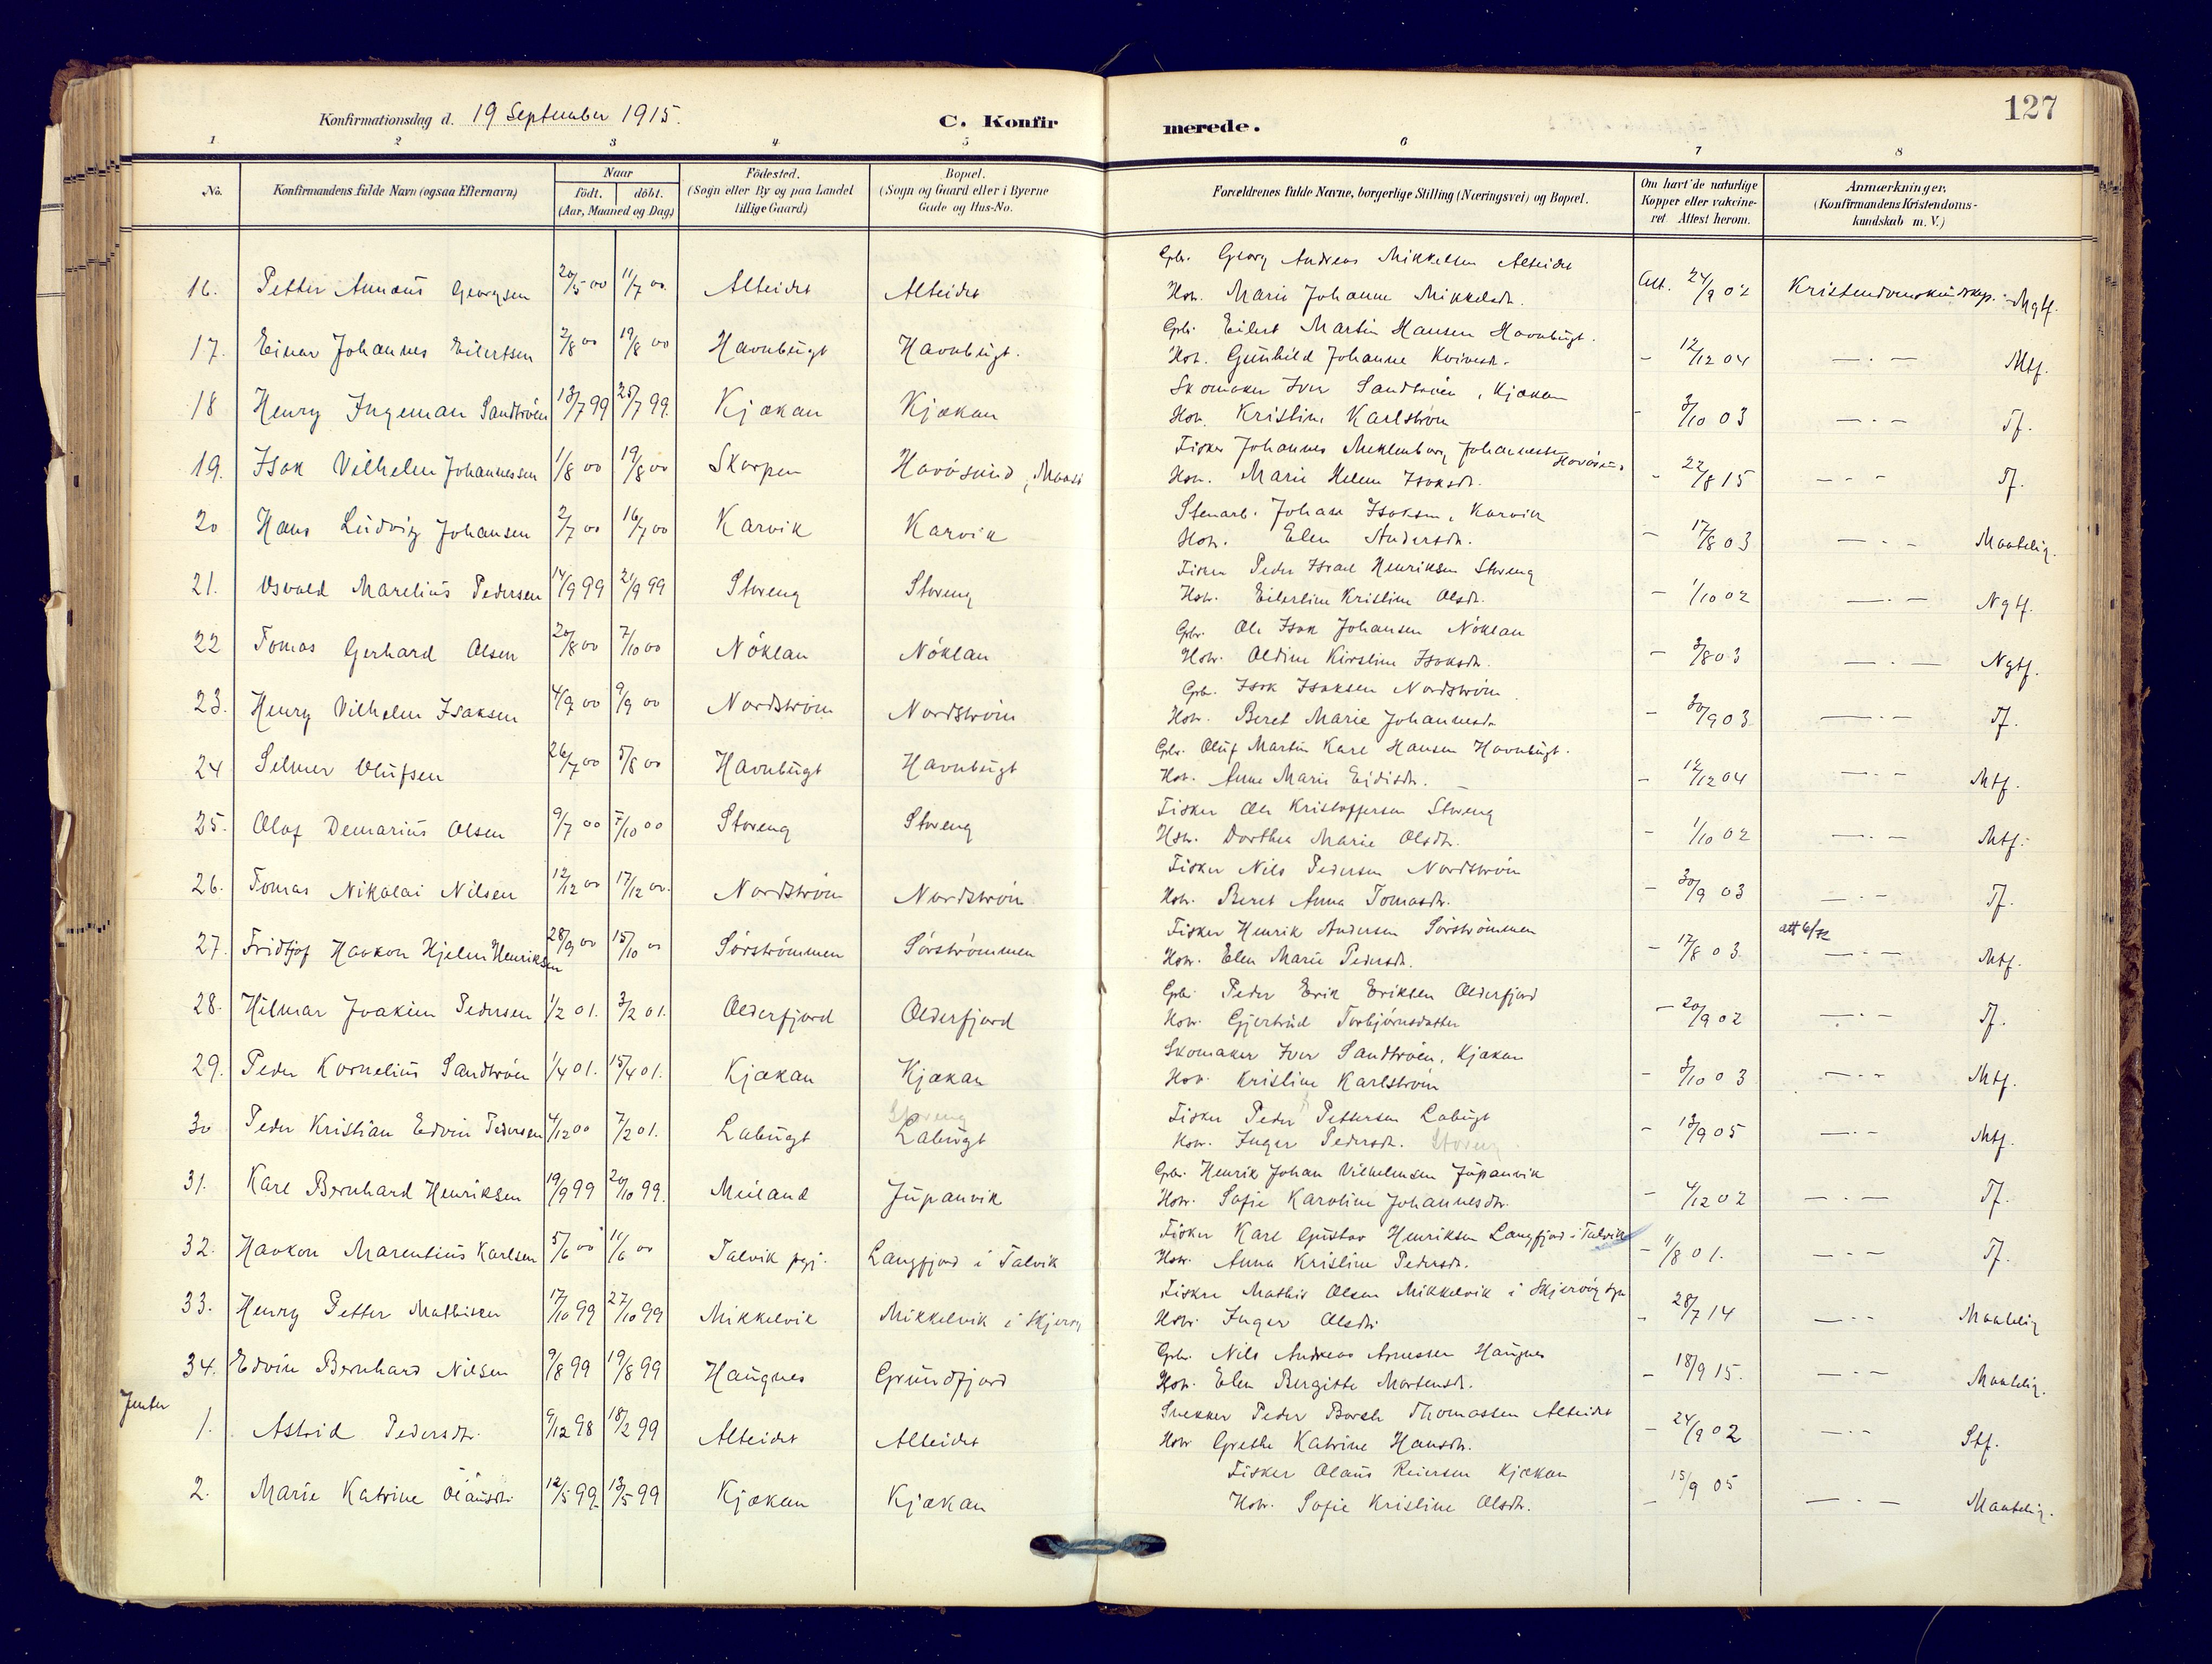 Konfirmationsdag d. 19 September 1915.
C. Konfirmerede.
127
1 2 3 4 5 6 7 8
No. Konfirmandens fulde Navn (ogsaa Efternavn) Naar født. døbt. (Aar, Maaned og Dag) Fødested. (Sogn eller By og paa Landet tillige Gaard) Bopæl. (Sogn og Gaard eller i Byerne Gade og Hus-No. Forældrenes fulde Navne, borgerlige Stilling (Næringsvei) og Bopæl. Om havt de naturlige Kopper eller vakcineret. Attest herom. Anmærkninger. (Konfirmandens Kristendomskundskab m. V.)
Gbr. Georg Andreas Mikkelsen Alteidet
16. Petter Georgsen 20/5 00 11/7 00. Alteidet Alteidet Hstr. Marie Johanne Mikkelsdtr. Att. 24/9 02 Kristendomskundskap. - Mgtf.
Gbr. Eilert Martin Hansen Havnbugt.
17. Einar Johannes Eilertsen 2/8 00 19/8 00 Havnbugt Havnbugt. Hstr. Gunhild Johanne - 12/12 04 — . — Mtf.
Skomaker Iver Sandtrøen, Kjækan
18 Henry Ingeman Sandtrøen 13/7 99 25/7 99. Kjækan Kjækan Hstr. Kristine Karlstrøm - 3/10 03 — . — Tf.
Fisker Johannes Meklenborg Johannessen Havøsund
19. Isak Vilhelm Johannessen 1/8 00 19/8 00 Skarpen Havøsund, Maasø Hstr. Marie Helene Isaksdtr. - 22/8 15 — - - Tf.
Stenarb. Johan Isaksen, Karvik
20 Hans Ludvig Johansen 2/7 00 16/7 00 Karvik Karvik Hstr. Elen Andersdtr. - 17/8 03 — . - Maatelig.
Fisker Peder Israel Henriksen Storeng
21. Osvald Marelius Pedersen 14/9 99 21/9 99 Storeng Storeng Hstr. Eilertine Kristine Olsdtr. - 1/10 02 — . — Ngtf.
Gbr. Ole Isak Johansen Nøklan
22 Tomas Gerhard Olsen 20/8 00 7/10 00 Nøklan Nøklan Hstr. Oldine Kirstine Isaksdtr. - 3/8 03 — . — Ngtf.
Gbr. Isak Isaksen Nordstrøm.
23. Henry Vilhelm Isaksen 4/9 00 9/9 00 Nordstrøm Nordstrøm Hstr. Beret Marie Johannesdtr. - 30/9 03 — . — Tf.
Gbr. Oluf Martin Karl Hansen Havnbugt.
24 Selmer Olufsen 26/7 00 5/8 00 Havnbugt Havnbugt Hstr. Anne Marie Eidisdtr. - 12/12 04 — . — Mtf.
Fisker Ole Kristoffersen Storeng
25. Olaf Demarius Olsen 9/7 00 7/10 00 Storeng Storeng Hstr. Dorthea Marie Olsdtr. - 1/10 02 — . — Mtf.
Fisker Nils Pedersen Nordstrøm
26. Tomas Nikolai Nilsen 12/12 00 17/12 00. Nordstrøm Nordstrøm Hstr. Beret Anna Tomasdtr. - 30/9 03 — . — Tf.
Fisker Henrik Andersen Sørstrømmen
27. Fridtjof Haakon Hjelm Henriksen 28/9 00 15/10 00 Sørstrømmen Sørstrømmen Hstr. Elen Marie Pedersdtr. - 17/8 03. att — . — Mtf.
Gbr. Peder Erik Eriksen Olderfjord
28. Hilmar Joakim Pedersen 1/2 01. 3/2 01. Olderfjord Olderfjord Hstr. Gjertrud Torbjørnsdatter - 20/9 02 — . — Tf.
Skomaker Iver Sandtrøen, Kjækan
29. Peder Kornelius Sandtrøen 1/4 01. 15/4 01. Kjækan Kjækan Hstr. Kristine Karlstrøm - 3/10 03 — . — Mtf.
Storeng
Fisker Peder Pettersen Labugt
30 Peder Kristian Edvin Pedersen 4/12 00 7/2 01. Labugt Labugt Hstr. Inger Pedersdtr. Storeng - 13/9 05 — . — Mtf.
Gbr. Henrik Johan Vilhelmsen Jupanvik
31. Karl Bernhard Henriksen 19/9 99 20/10 99. Meiland Jupanvik Hstr. Sofie Karoline Johannesdtr. - 4/12 02 — . — Tf.
Fisker Karl Gustav Henriksen Langfjord i Talvik
32. Haakon Marentius Karlsen 5/6 00 11/6 00 Talvik pgj. Langfjord i Talvik Hstr. Anna Kristine Pedersdtr. - 11/8 01. — . — Tf.
Fisker Mathis Olsen Mikkelvik i Skjervøy
33. Henry Petter Mathisen 17/10 99 27/10 99 Mikkelvik Mikkelvik i Skjervøy Hstr. Inger Olsdtr. - 28/7 14 — . — Maatelig
Gbr. Nils Andreas Arnessen Haugnes
34. Edvin Bernhard Nilsen 9/8 99 19/8 99 Haugnes Grundfjord Hstr. Elen Bergitte Mortensdtr. - 18/9 15. — . — Maatelig.
Jenter
Snekker Peder Borch Thomassen Alteidet
1. Astrid Pedersdtr. 9/12 98 18/2 99 Alteidet Alteidet Hstr. Grethe Katrine Hansdtr. - 24/9 02 — . — Stf.
Fisker Olaus Reiersen Kjækan
2. Marie Katrine Olausdtr. 12/5 99. 13/5 99 Kjækan Kjækan Hstr. Sofie Kristine Olsdtr. - 15/9 05 — . — Maatelig.